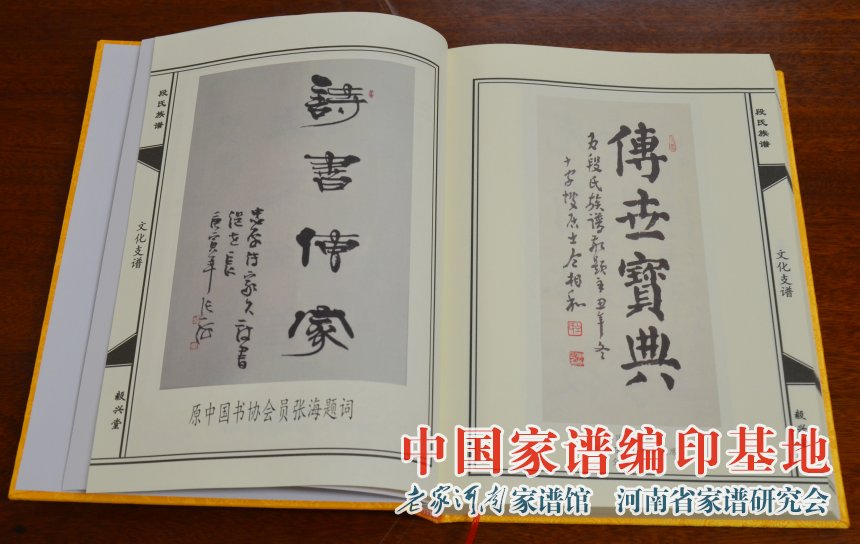 段氏族谱
文化支谱
毅兴堂
詩書傳家
忠厚传家久诗书
继世长
庚寅年 张海
原中国书协会员张海题词
傳世寶典
为段氏族谱敬题辛丑年冬
段氏族谱
文化支谱
毅兴堂
中国家谱编印基地
老家河南家谱馆 河南省家谱研究会